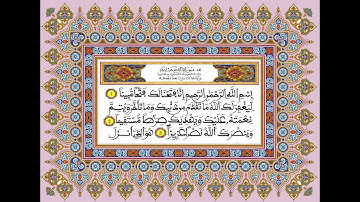 بِسْمِ اللَّهِ الرَّحْمَنِ الرَّحِيمِ إِنَّا فَتَحْنَا لَكَ فَتْحًا مُبِينًا
لِيَغْفِرَ لَكَ اللَّهُ مَا تَقَدَّمَ مِنْ ذَنْبِكَ وَمَا تَأَخَّرَ وَيُتِمَّ
نِعْمَتَهُ عَلَيْكَ وَيَهْدِيَكَ صِرَاطًا مُسْتَقِيمًا
وَيَنْصُرَكَ اللَّهُ نَصْرًا عَزِيزًا هُوَ الَّذِي أَنْزَلَ